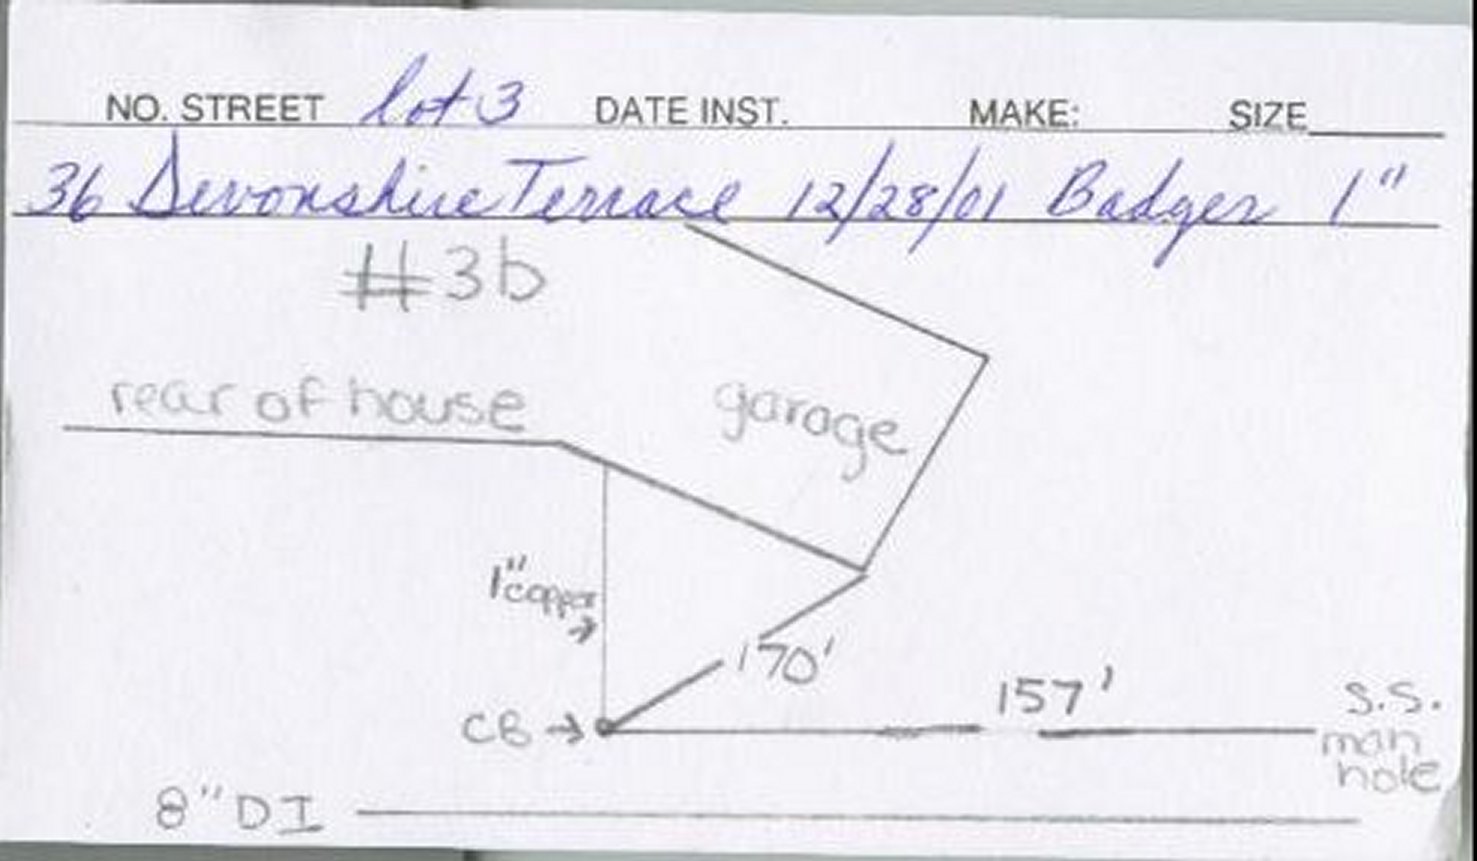 NO. STREET lot 3 DATE INST. MAKE: SIZE
36 Devonshire Terrace 12/28/01 Badger 1"
#36
rear of house
garage
1" copper
170'
157'
CB
S.S.
man
hole
8" DI